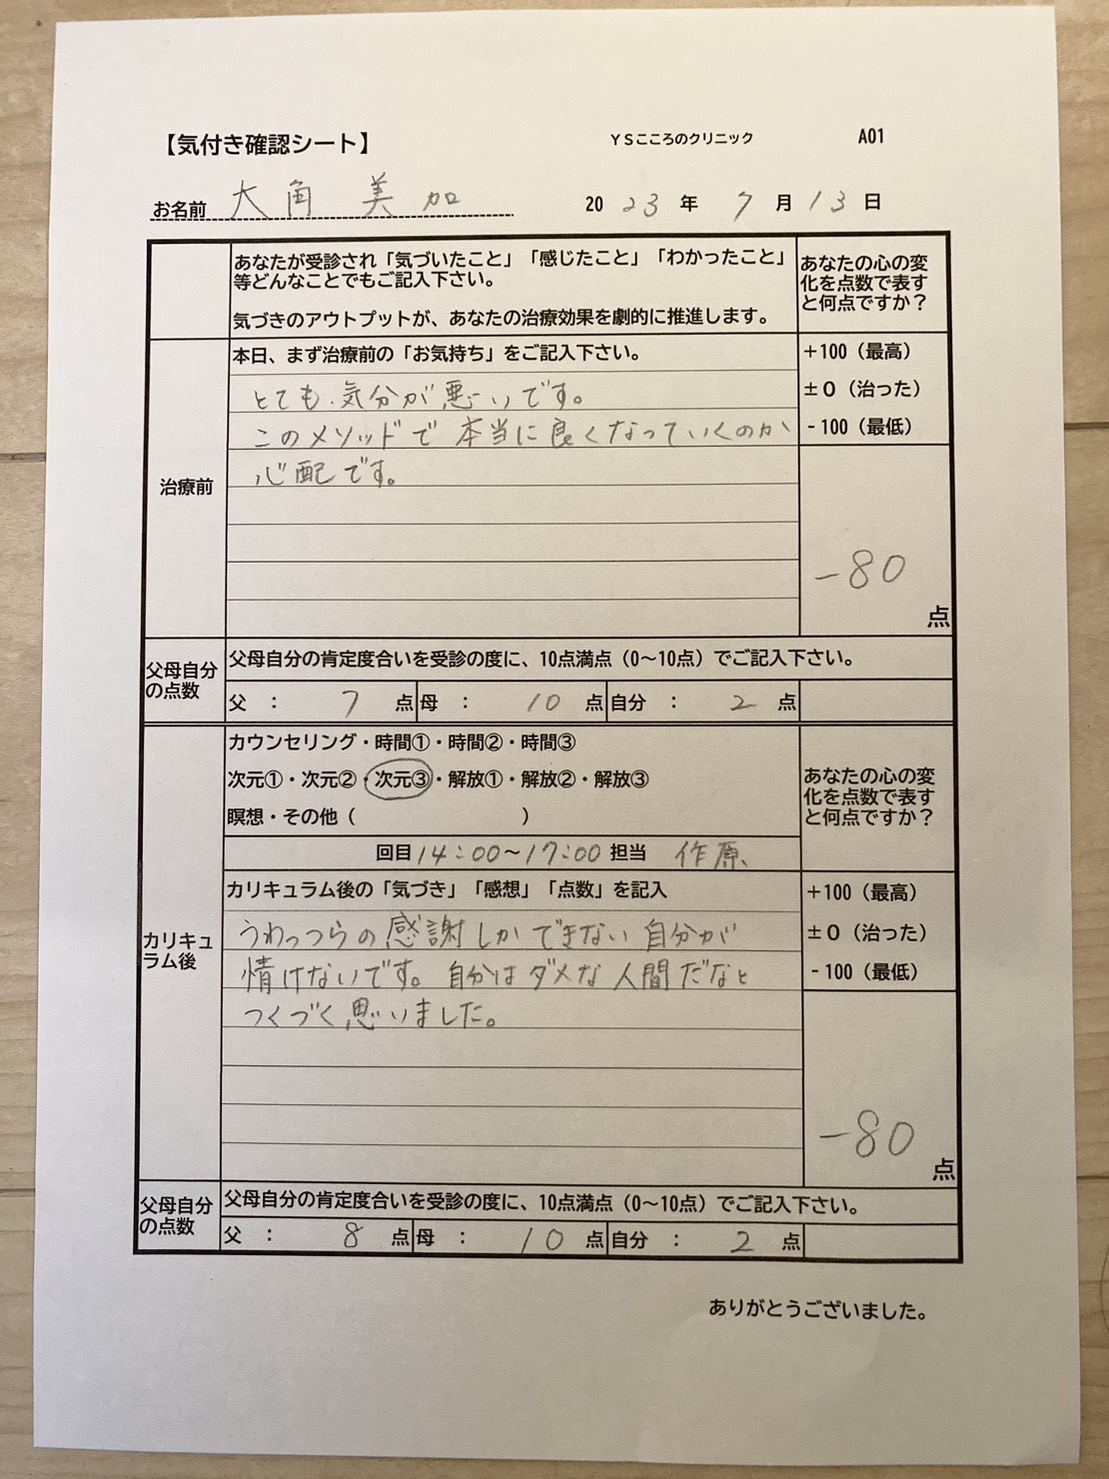 【気付き確認シート】 ＹＳこころのクリニック A01
お名前 大角 美加 2023年 7月13日
あなたが受診され「気づいたこと」「感じたこと」「わかったこと」
等どんなことでもご記入下さい。
気づきのアウトプットが、あなたの治療効果を劇的に推進します。
あなたの心の変
化を点数で表す
と何点ですか？
治療前
本日、まず治療前の「お気持ち」をご記入下さい。
とても気分が悪いです。
このメソッドで本当に良くなっていくのか
心配です。
+100（最高）
±０（治った）
-100（最低）
-80
点
父母自分
の点数
父母自分の肯定度合いを受診の度に、10点満点（0〜10点）でご記入下さい。
父 ： 7 点 母 ： 10 点 自分 ： 2 点
カリキュ
ラム後
カウンセリング・時間①・時間②・時間③
次元①・次元②・次元③・解放①・解放②・解放③
瞑想・その他（ ）
回目 14:00〜17:00 担当 作原
あなたの心の変
化を点数で表す
と何点ですか？
カリキュラム後の「気づき」「感想」「点数」を記入
うわっつらの感謝しかできない自分が
情けないです。自分はダメな人間だなと
つくづく思いました。
+100（最高）
±０（治った）
-100（最低）
-80
点
父母自分
の点数
父母自分の肯定度合いを受診の度に、10点満点（0〜10点）でご記入下さい。
父 ： 8 点 母 ： 10 点 自分 ： 2 点
ありがとうございました。